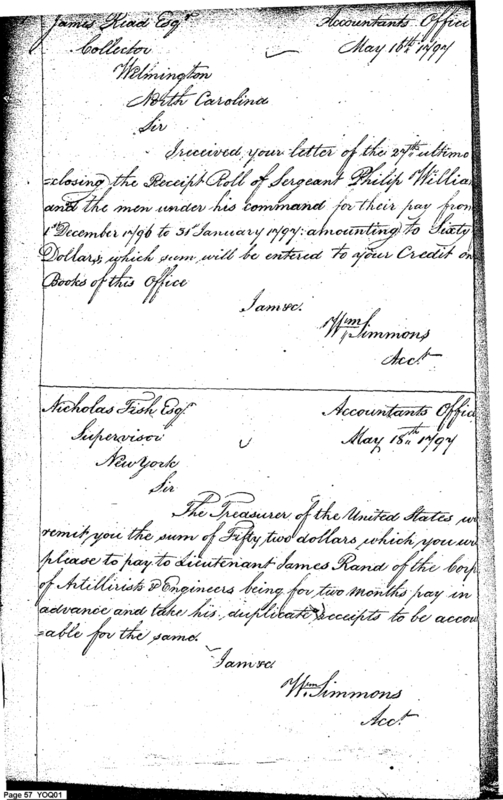 James Read Esqr. Accountants Office
Collector May 16th 1797
Wilmington
North Carolina
Sir
I received your letter of the 27th ultimo
=closing the Receipt Roll of Sergeant Philip Willia
and the men under his command for their pay from
1st December 1796 to 31st January 1797: amounting to Sixty
Dollars, which sum will be entered to your Credit on
Books of this Office
I am &c.
Wm Simmons
Acct.
Nicholas Fish Esqr. Accountants Offic
Supervisor May 18th 1797
New York
Sir
The Treasurer of the United States w
remit you the sum of Fifty two dollars which you w
please to pay to Lieutenant James Rand of the Corp
of Artillirists & Engineers being for two months pay in
advance and take his duplicate receipts to be accou
=able for the same.
I am &c
Wm Simmons
Acct.
Page 57 YOQ01